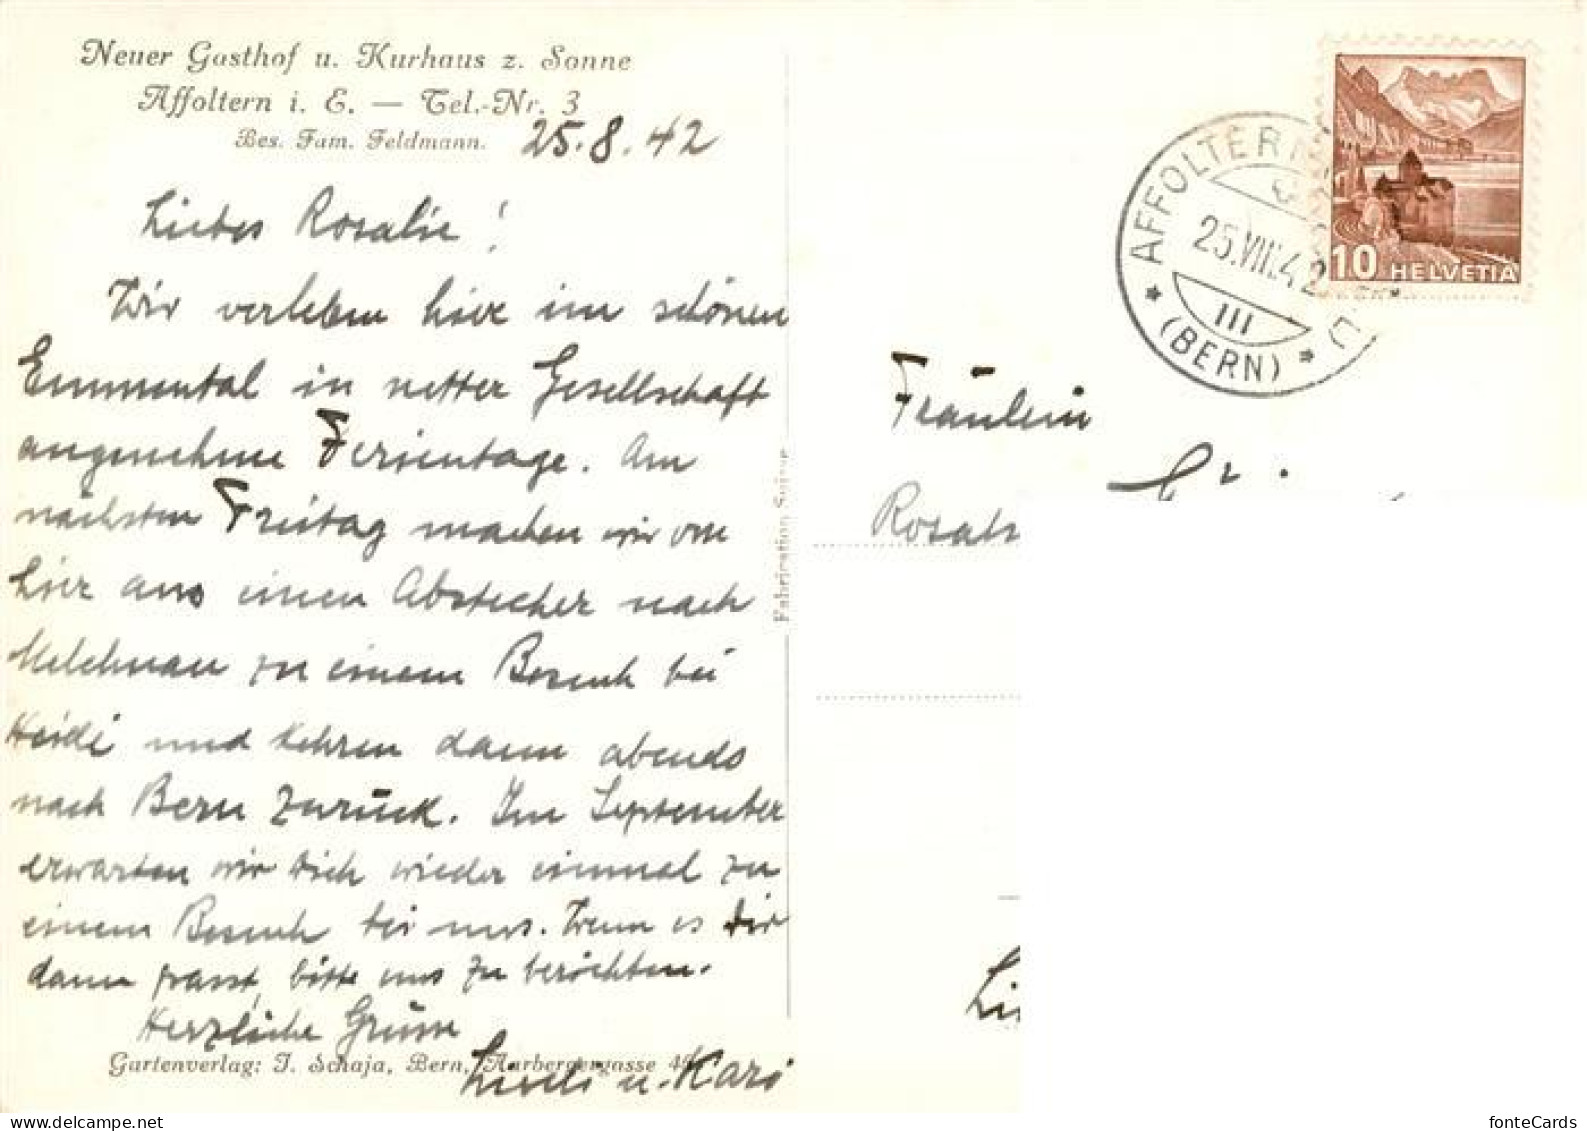 Neuer Gasthof u. Kurhaus z. Sonne
Affoltern i. E. — Tel.-Nr. 3
Bes. Fam. Feldmann.
25.8.42
Liebes Rosalie!
Wir verleben hier im schönen
Emmental in netter Gesellschaft
angenehme Ferientage. Am
nächsten Freitag machen wir von
hier aus einen Abstecher nach
Melchnau zu einem Besuch bei
Heidi und kehren dann abends
nach Bern zurück. Im September
erwarten wir Dich wieder einmal zu
einem Besuch bei uns. Wenn es Dir
dann passt, bitte uns zu berichten.
Herzliche Grüsse
Gartenverlag: J. Schaja, Bern, Aarbergergasse
u. Kari
Fabrication
AFFOLTERN
25.VIII.42
III
(BERN)
10 HELVETIA
Fräulein
Rosali
delcampe.net
fonteCards